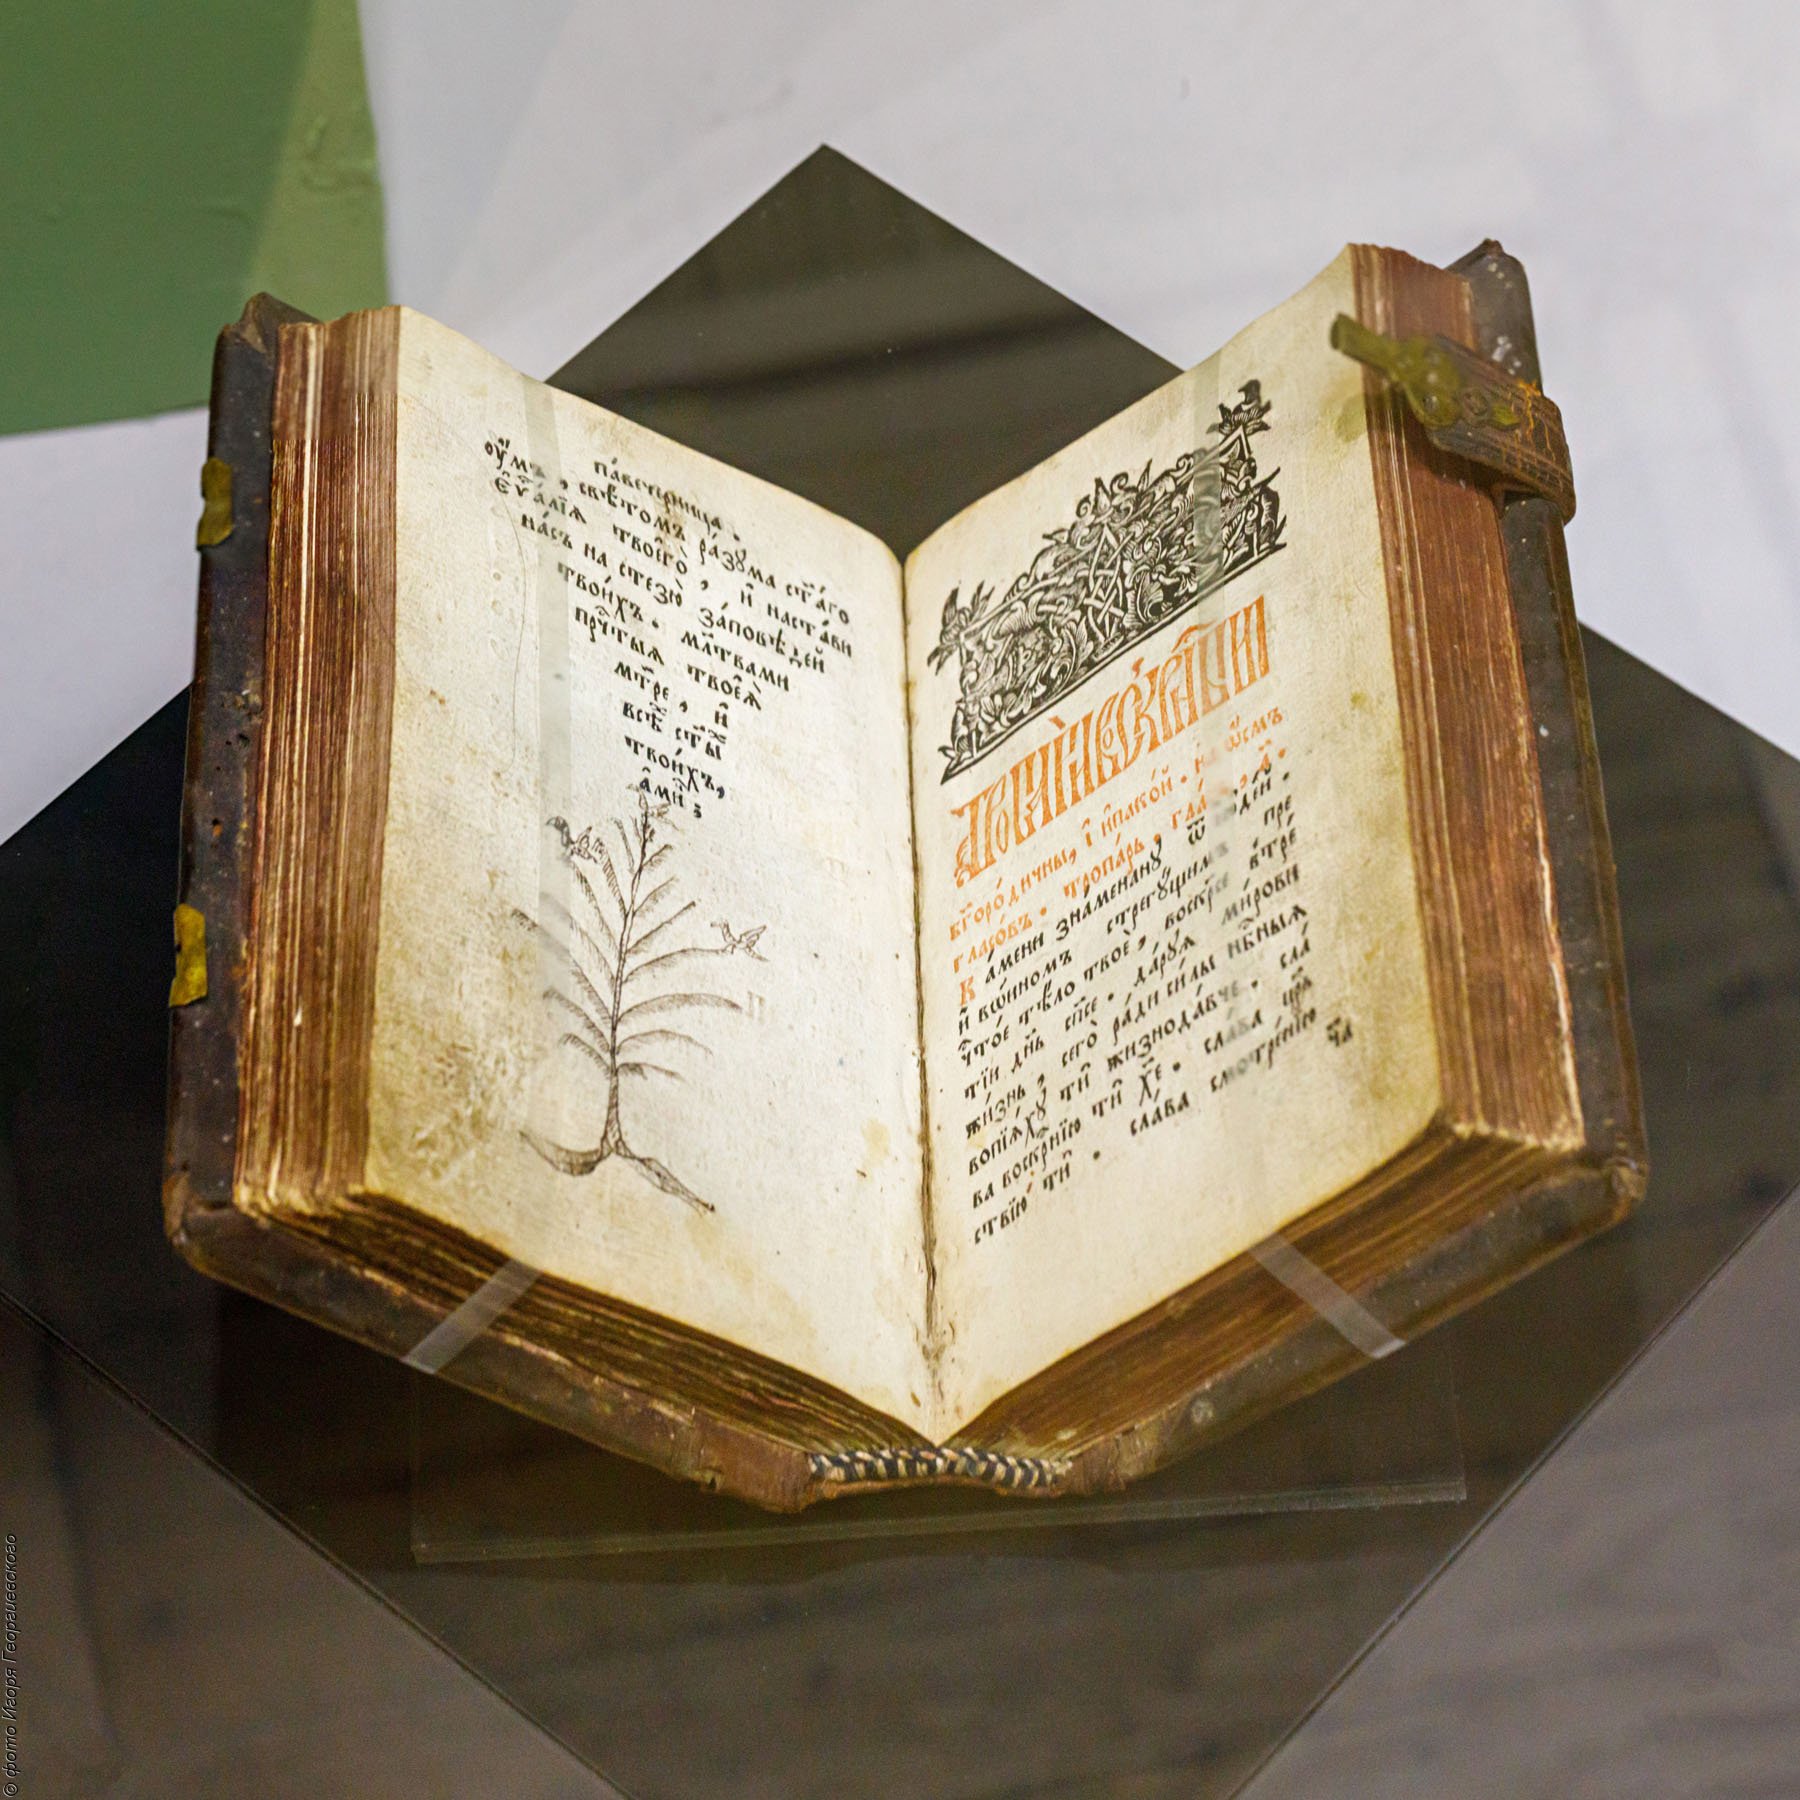 па́вечерница .
ѹ҆́мъ , свѣ́томъ ра́зꙋма ст҃а́го
є҆ѵⷢ҇а́лїѧ твоегѡ̀ , и҆ наста́ви
на́съ на стезю̀ за́повѣдей
твои́хъ . мл҃твами
прⷱ҇тыѧ твоеѧ̀
мт҃ре , и҆
всѣ́х ст҃ы́х
твои́хъ ,
а҆ми́нь
Тропарѝ воскрⷭ҇ны
бг҃оро́дичны , і҆ и҆пако́й . на ѻ҆́смъ
гласо́въ . тропа́рь , гла́ , а҃ .
Ка́мени зна́менанꙋ ѿ і҆ꙋде́й .
и҆ во́инномъ стрегꙋ́щимъ пре
чⷭ҇тое тѣ́ло твоѐ , воскр҃се в̾тре́
тїи дн҃ь сп҃се . да́рꙋѧ ми́рови
жи́знь , сего̀ ра́ди си́лы нбⷭ҇ныѧ
вопїѧ́хꙋ тѝ жизнода́вче . сла́
ва воскрⷭ҇нїю тѝ хⷭ҇е . сла́ва црⷭ҇
ствїю́ тѝ . сла́ва смотре́нїю
тв҃а
© фото Игоря Георгиевского